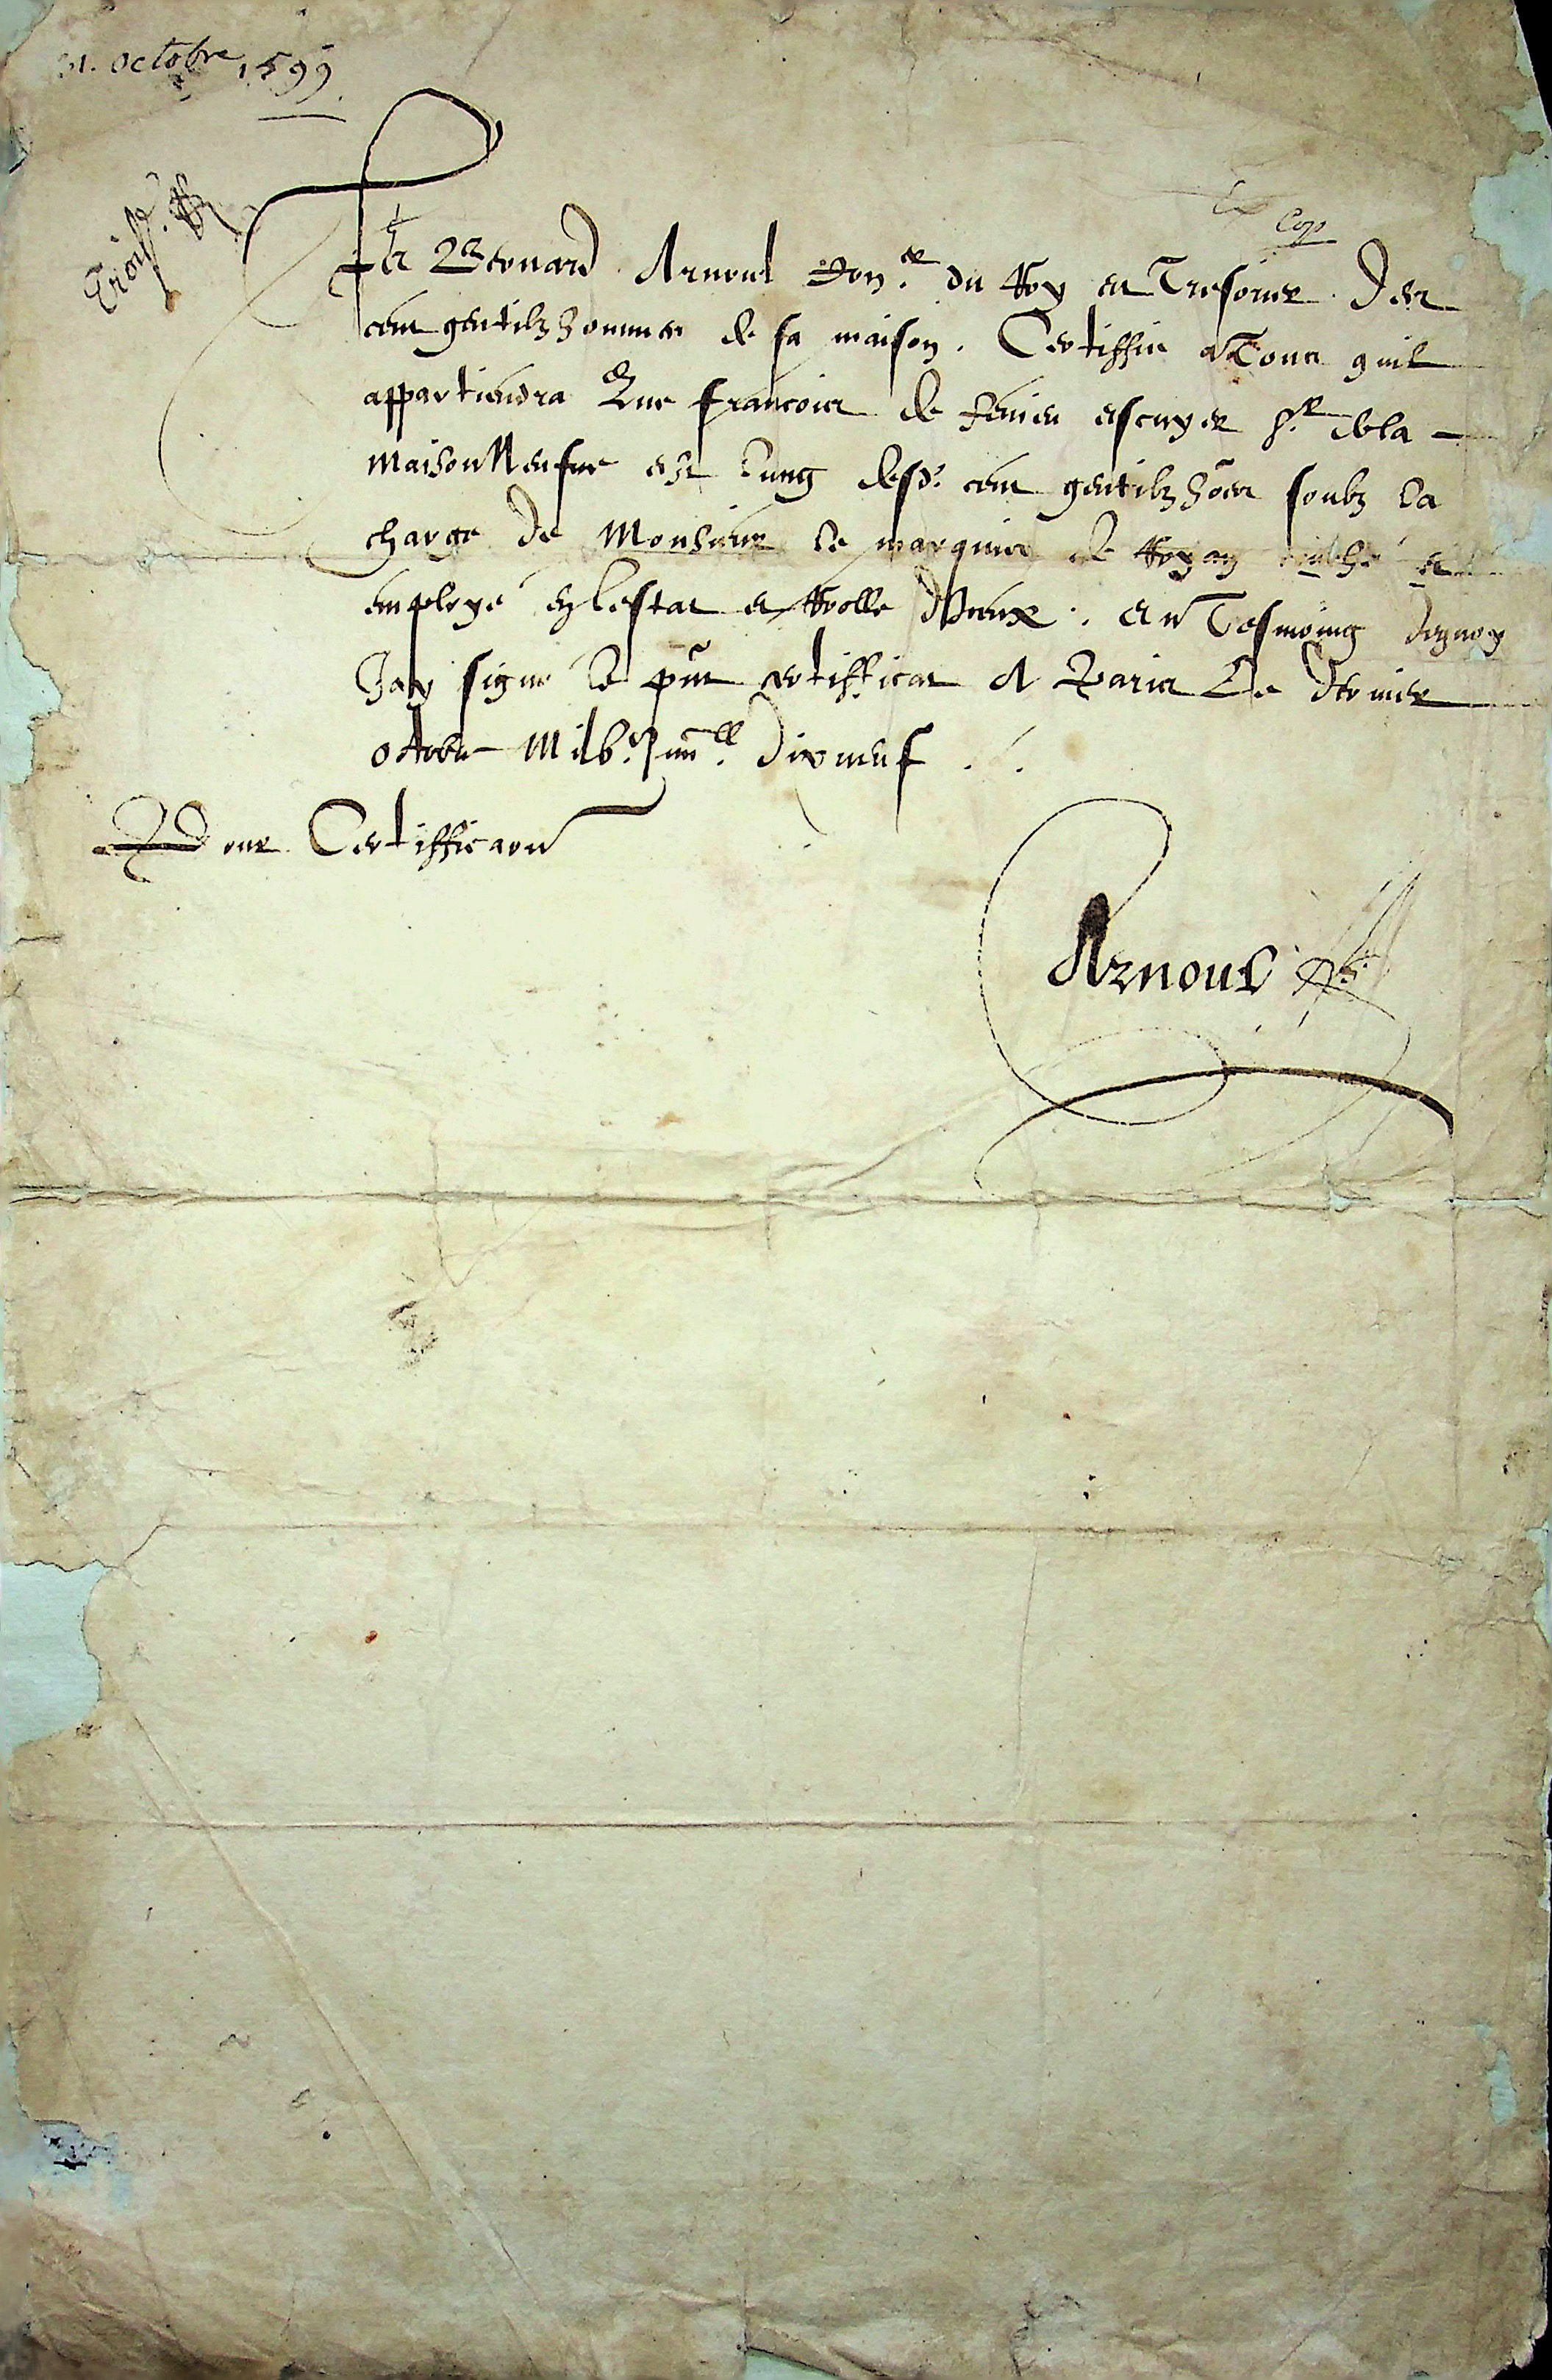 31. octobre 1599.
Cop
Je Leonard Arnoul Con.er du Roy et Tresorier des
cent gentilzhommes de sa maison. Certiffie a Tous quil
appartiendra Que francois de escuyer s.r dela
maison Neufve est lung desd. cent gentilzhoes soubz la
charge de Monsieur le marquis de Royan et
employé en lestat et Rolle diceux. En Tesmoing dequoy
Jay signe le pnt certifficat A Paris Le dernier
octobre Mil b.c iiii.xx dixneuf
Pour Certifficaon
Arnoul